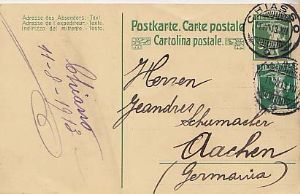 Adresse des Absenders: Text.
Adresse de l'expéditeur: Texte.
Indirizzo del mittente: Testo.
Postkarte. Carte postale.
Cartolina postale.
CHIASSO
Chiasso
11-8-1913
Herren
Jeandres
Schumacher
Aachen
(Germania)